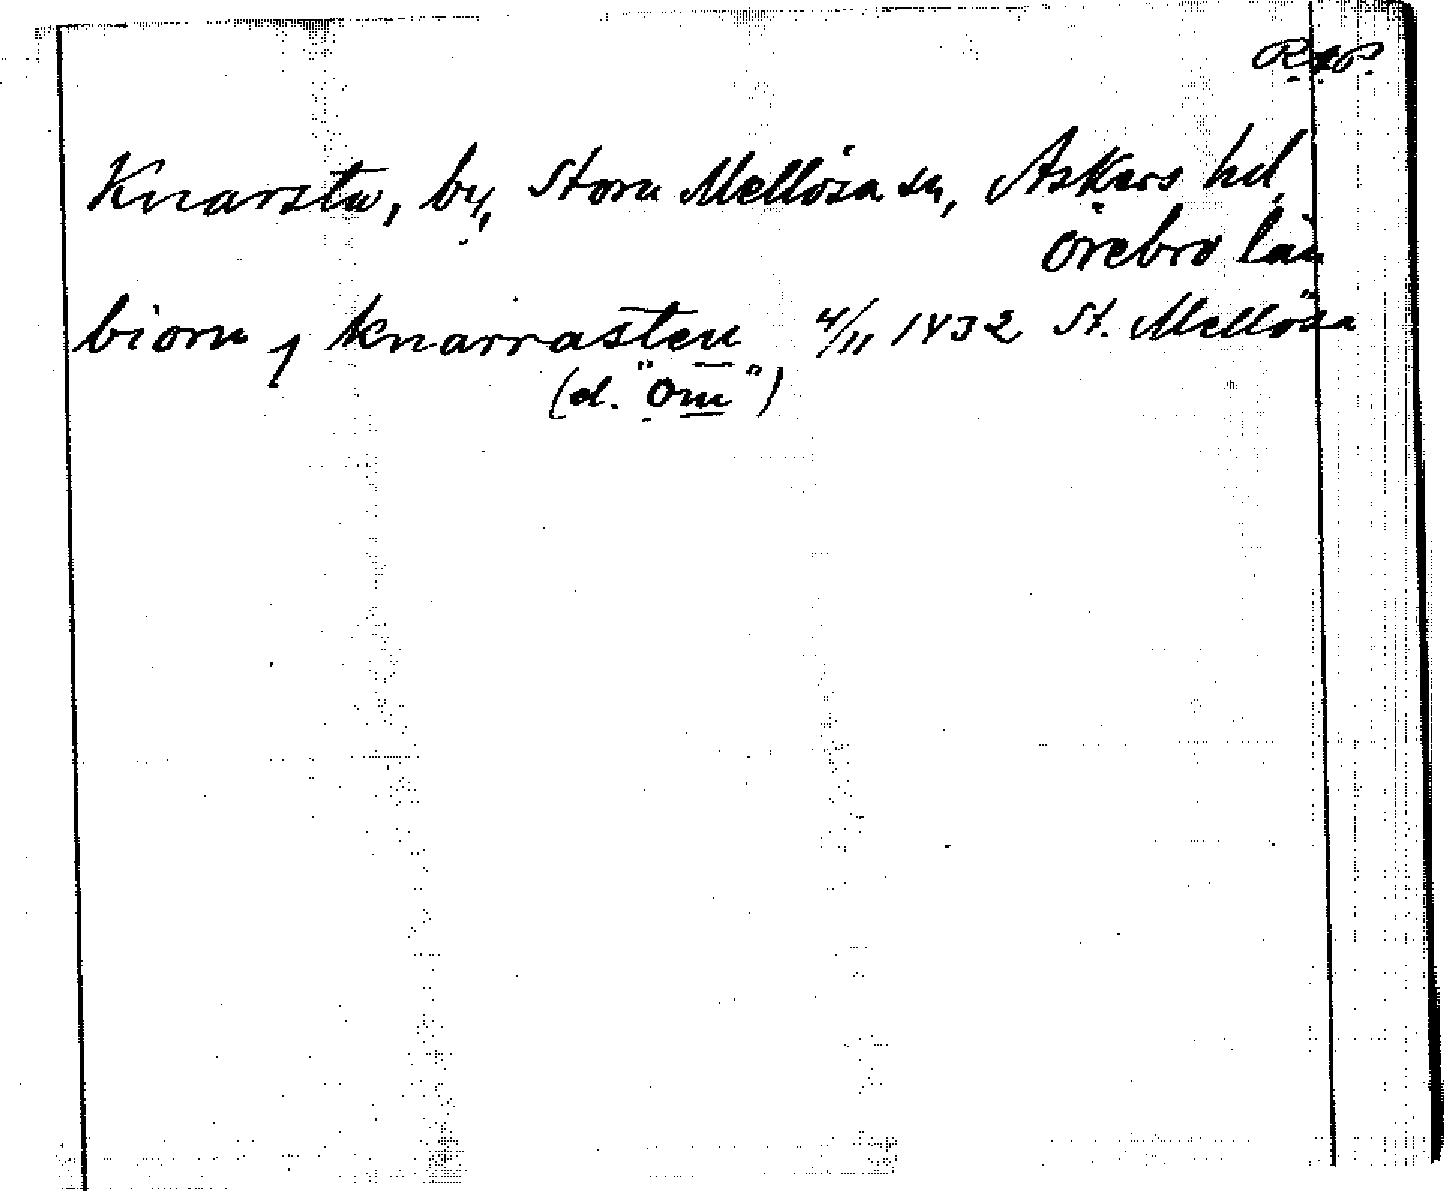 RAP.
Knarsta, by, Stora Mellösa sn, Askers hd,
Örebro län
biorn j knarrasten 4/11 1432 St. Mellösa
(d. "Om")